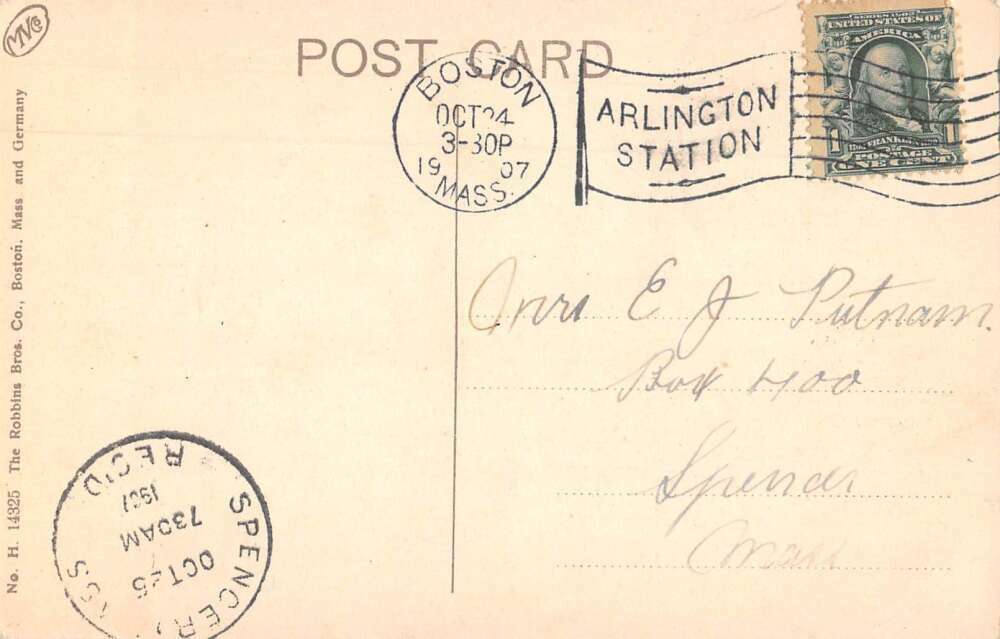 MVCo
POST CARD
BOSTON
OCT 24
3-30P
19 07
MASS.
ARLINGTON
STATION
SERIES 1902
UNITED STATES OF
AMERICA
1 1
FRANKLIN
POSTAGE
ONE CENT
Mrs E J Putnam.
Box 400
Spencer
Mass
No. H. 14325 The Robbins Bros. Co., Boston, Mass and Germany
SPENCER,
OCT 25
730AM
1907
REC'D